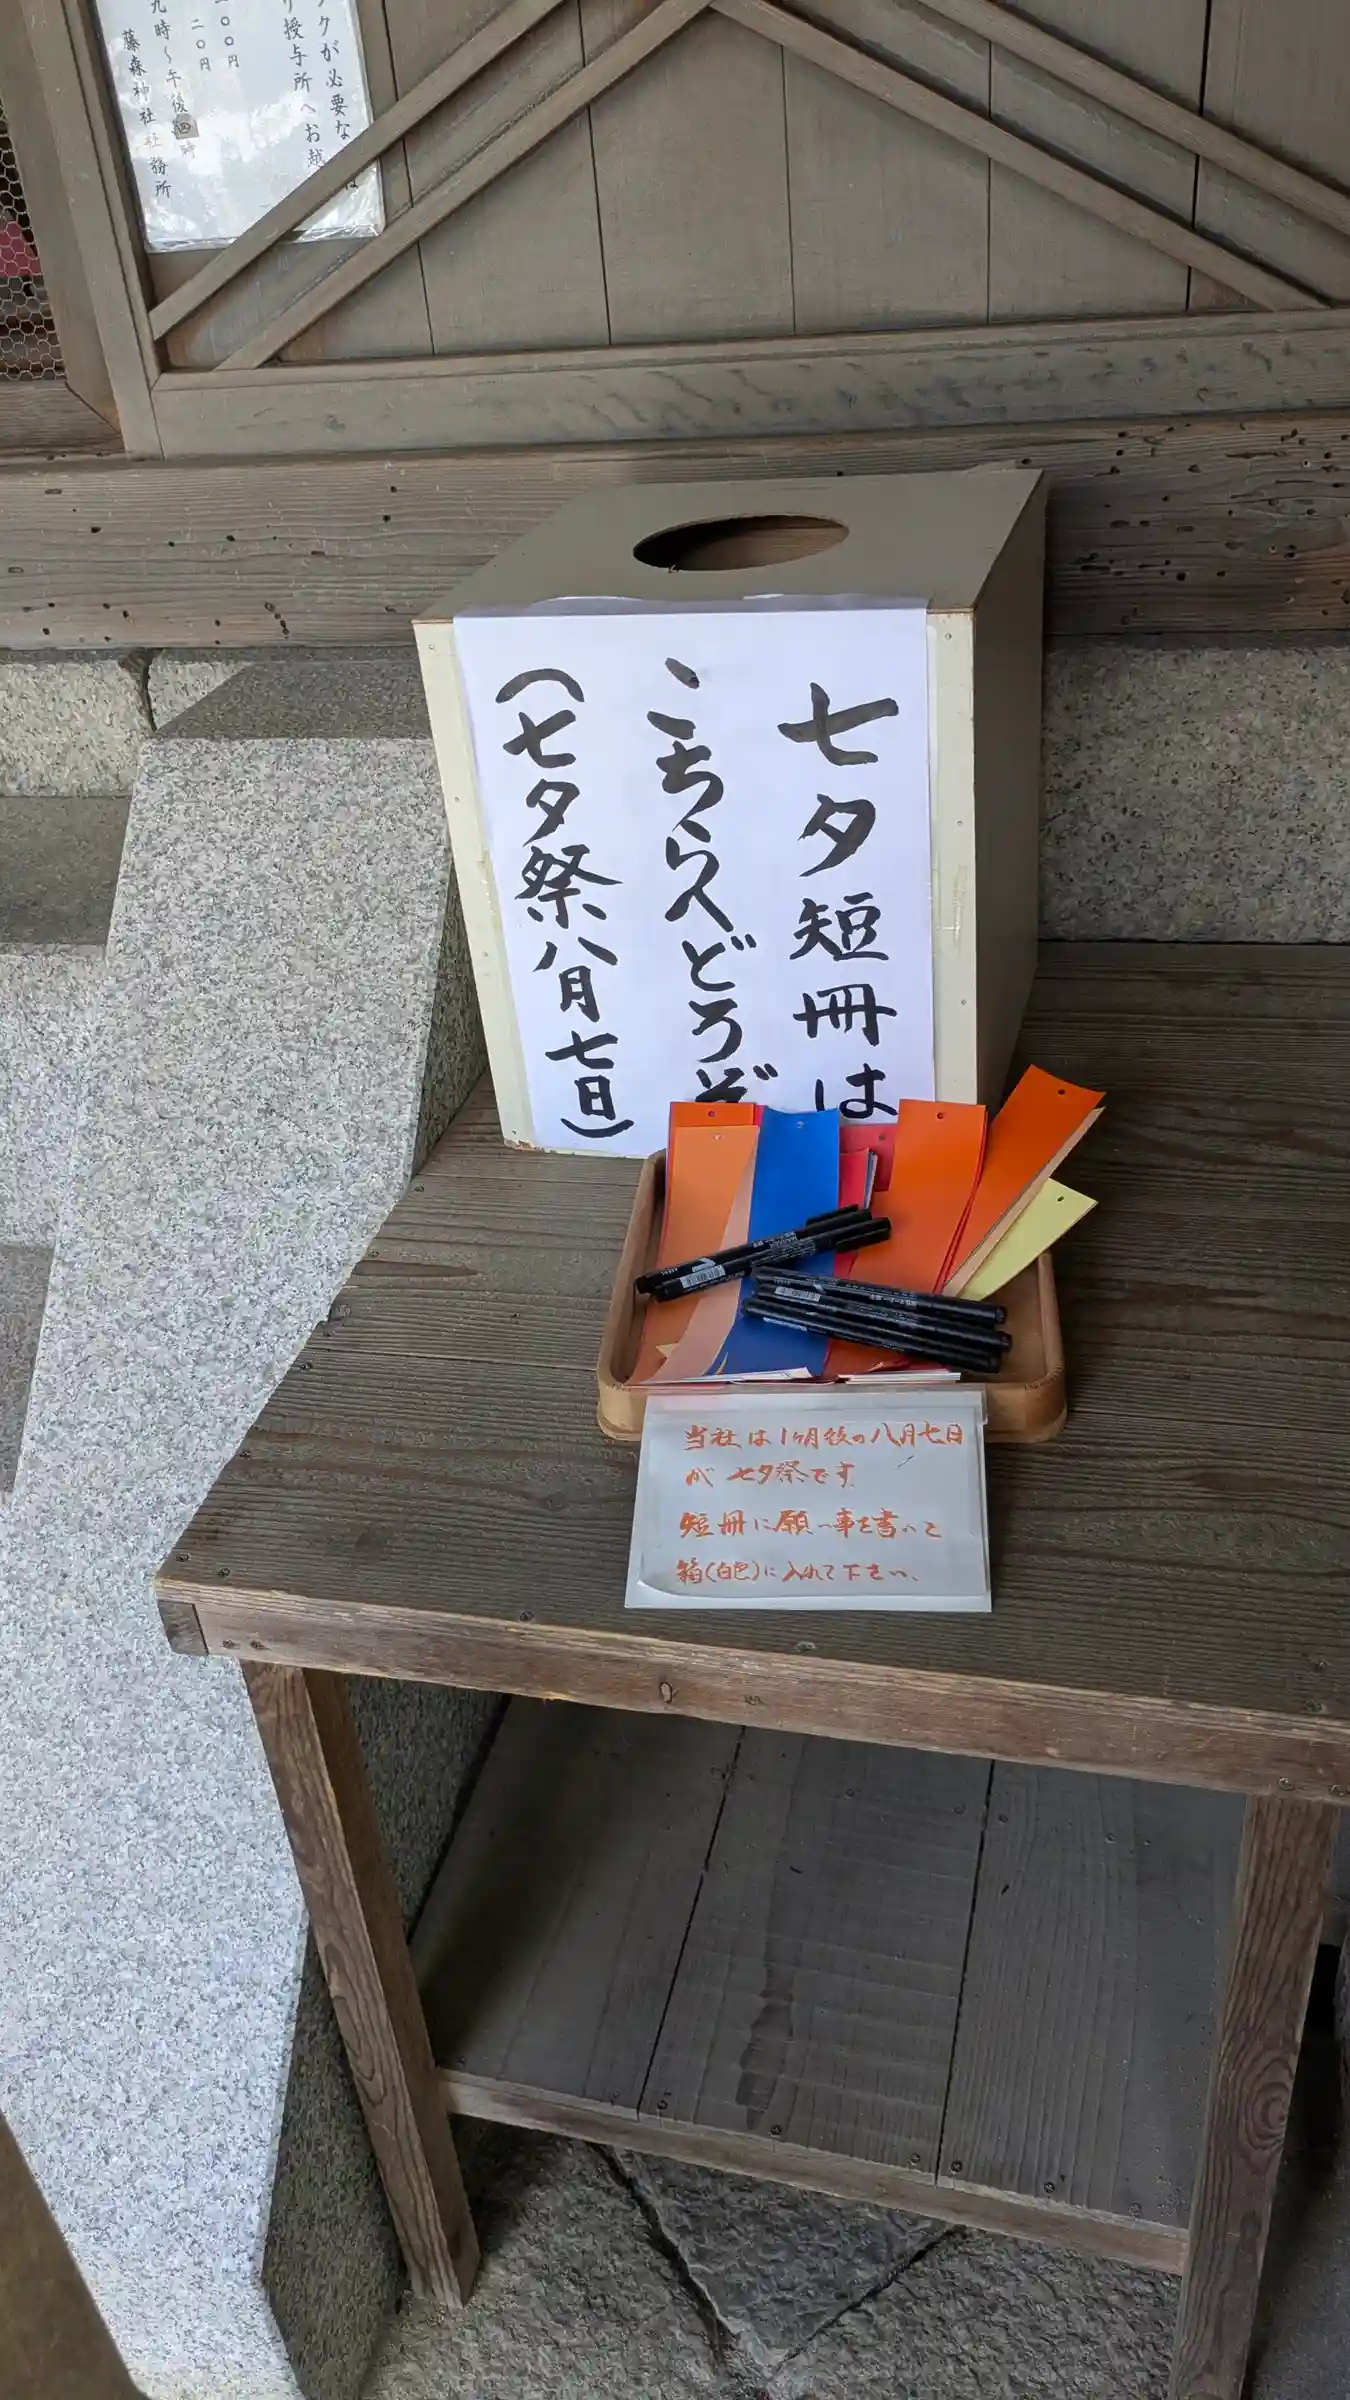 クが必要な
授与所へお越
二〇円
九時〜午後四時
藤森神社社務所
七夕短冊は
こちらへどうぞ
(七夕祭八月七日)
当社は1ヶ月後の八月七日
が七夕祭です。
短冊に願い事を書いて
箱(白色)に入れて下さい。